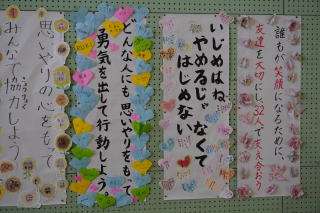 誰もが笑顔になるために、
友達を大切にし、32人で支え合おう
いじめはね
やめるじゃなくて
はじめない
どんな人にも思いやりをもって
勇気を出して行動しよう
思いやりの心をもって
みんなで協力しよう